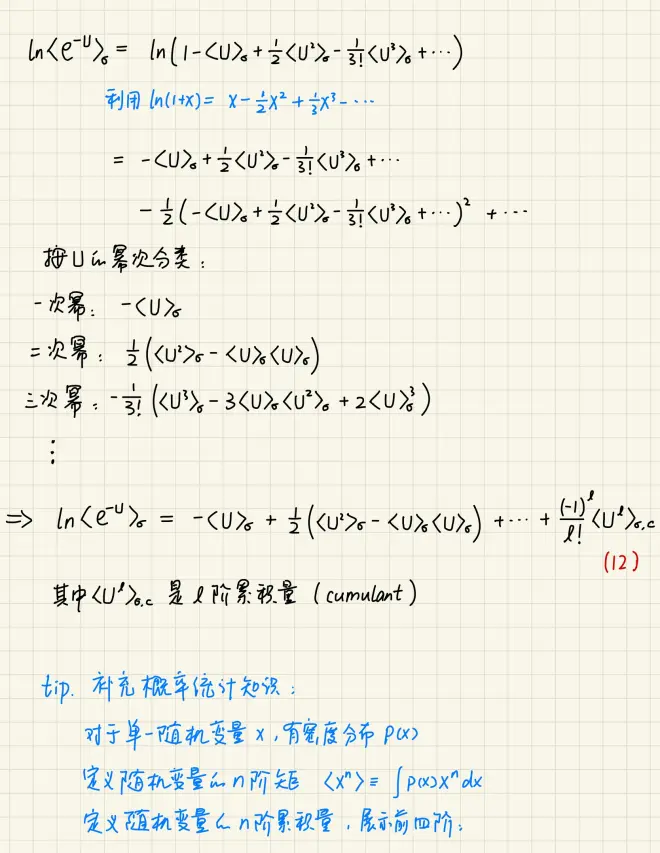 ln<e^{-U}>_σ = ln(1-<U>_σ+\frac{1}{2}<U²>_σ-\frac{1}{3!}<U³>_σ+⋯)
利用 ln(1+x)= x-\frac{1}{2}x²+\frac{1}{3}x³-⋯
= -<U>_σ+\frac{1}{2}<U²>_σ-\frac{1}{3!}<U³>_σ+⋯
-\frac{1}{2}(-<U>_σ+\frac{1}{2}<U²>_σ-\frac{1}{3!}<U³>_σ+⋯)² +⋯
按U的幂次分类：
一次幂： -<U>_σ
二次幂： \frac{1}{2}(<U²>_σ-<U>_σ<U>_σ)
三次幂：-\frac{1}{3!}(<U³>_σ-3<U>_σ<U²>_σ+2<U>_σ^3)
⋮
⇒ ln<e^{-U}>_σ = -<U>_σ + \frac{1}{2}(<U²>_σ-<U>_σ<U>_σ) +⋯+ \frac{(-1)^ℓ}{ℓ!}<U^ℓ>_{σ,c}
(12)
其中<U^ℓ>_{σ,c} 是 ℓ 阶累积量 (cumulant)
tip. 补充概率统计知识：
对于单一随机变量 x，有密度分布 P(x)
定义随机变量的n阶矩 <xⁿ> ≡ ∫P(x)xⁿdx
定义随机变量的n阶累积量，展示前四阶：